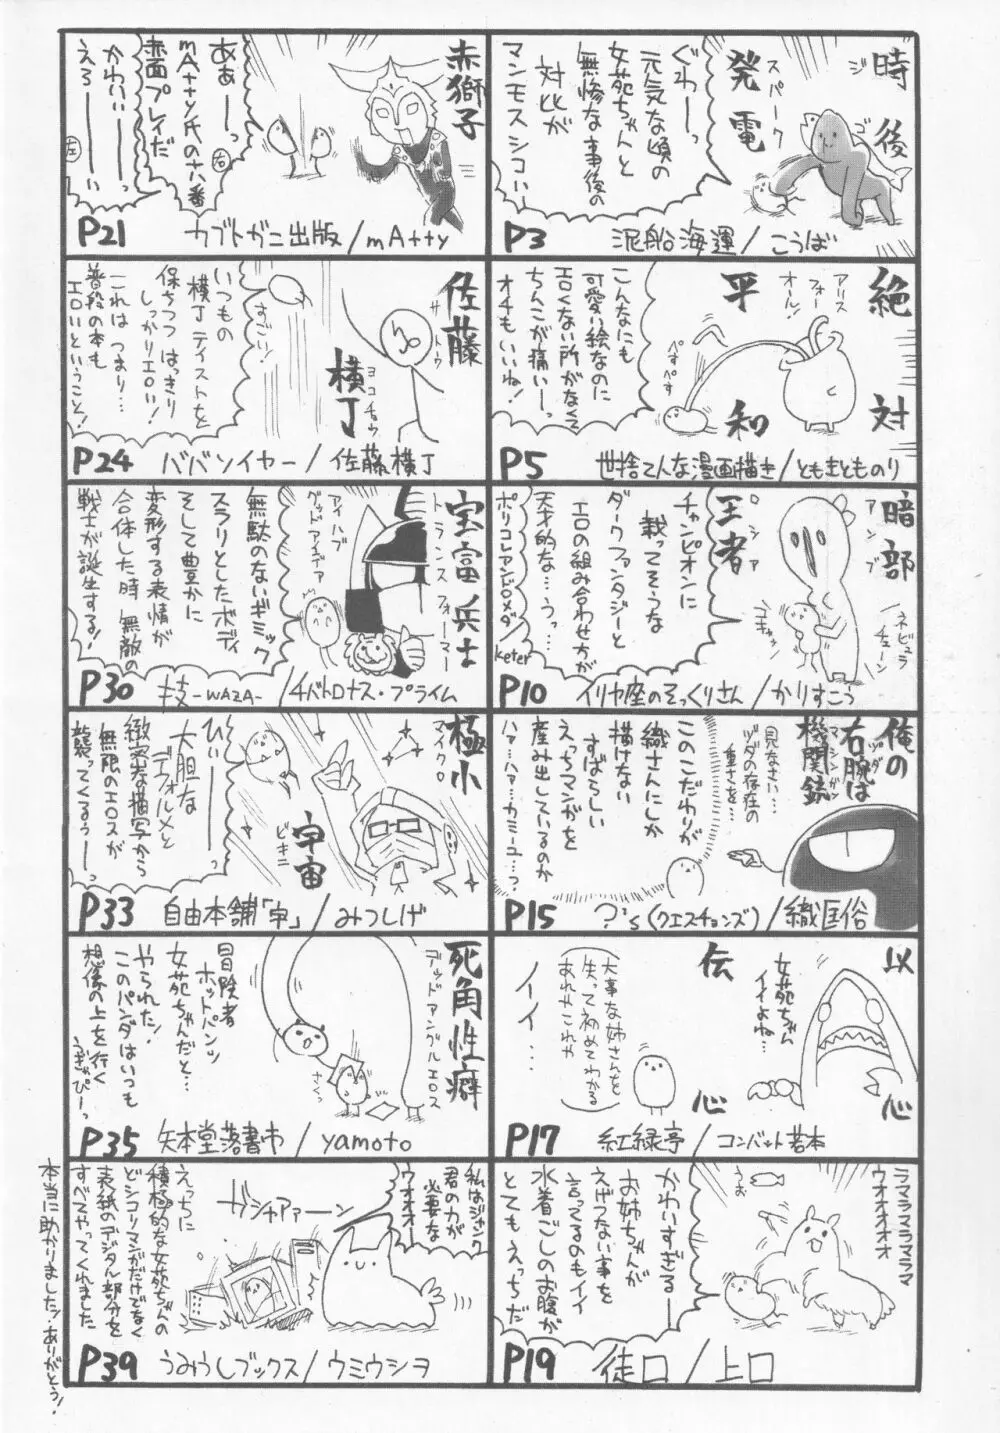 時後
ジゴ
発電
スパーク
ぐわーっ
元気な頃の
女苑ちゃんと
無惨な事後の
対比が
マンモスシコいい
P3 泥船海運/こうば
絶対
平和
アリス
フォー
オール!
こんなにも
可愛い絵なのに
エロくない所がなくて
ちんこが痛いーっ
オチもいいね!
ぺすぺす
P5 世捨てんな漫画描き/ともきとものり
暗部
アンブ
王者
ロシア
ネビュラ
チェーン
チャンピオンに
載ってそうな
ダークファンタジーと
エロの組み合わせ方が
天才的な…うっ…
ポリコレアンドロメダ
keter
P10 イリヤ座のそっくりさん/かりすこう
俺の
右腕は
機関銃
マシンガン
見なさい…
ヅダの存在の
重さを…
このこだわりが
織さんにしか
描けない
すばらしい
えっちマンガを
産み出しているのか
ハァ…ハァ…カミーユ…っ
P15 ?'s(クエスチョンズ)/織日俗
以
心
伝
心
女苑ちゃん
イイよね…
大事な姉さんを
失って初めてわかる
あれやこれや
イイ…
P17 紅緑亭/コンバット若本
ラマラマラマラマ
ウオオオオオ
うお
かわいすぎる
お姉ちゃんが
えげつない事を
言ってるのもイイ
水着ごしのお腹が
とてもえっちだ
P19 徒口/上口
赤獅子
ああーっ
mAtty氏の十八番
赤面プレイだ
右
かわいいーーっ
えろーーーい
左
P21 カブトガニ出版/mAtty
佐藤
サトウ
横丁
ヨコチョウ
すごい!
いつもの
横丁テイストを
保ちつつはっきり
しっかりエロい!
これはつまり…
普段の本も
エロいということ!
P24 ババソイヤー/佐藤横丁
宝富ノ兵士
トランスフォーマー
アイハブ
グッドアイデア
無駄のないギミック
スラリとしたボディ
そして豊かに
変形する表情が
合体した時 無敵の
戦士が誕生する!
P30 技-WAZA-/チバトロナス・プライム
極小
マイクロ
宇宙
どきに
ひぃーーっ
大胆な
デフォルメと
緻密な描写から
無限のエロスが
襲ってくるぅーっ
P33 自由本舗「申」/みつしげ
死角性癖
デッドアングルエロス
冒険者
ホットパンツ
女苑ちゃんだと…
やられた!
このパンダはいつも
想像の上を行く
うぎゃぴーっ
P35 矢本堂落書市/yamoto
私はジャンク
君の力が
必要な
ウオオオ
ガシャアァーン
えっちに
積極的な女苑ちゃんの
どシコリマンガだけでなく
表紙のデジタル部分を
すべてやってくれました
本当に助かりました!ありがとう!
P39 うみうしブックス/ウミウシヲ